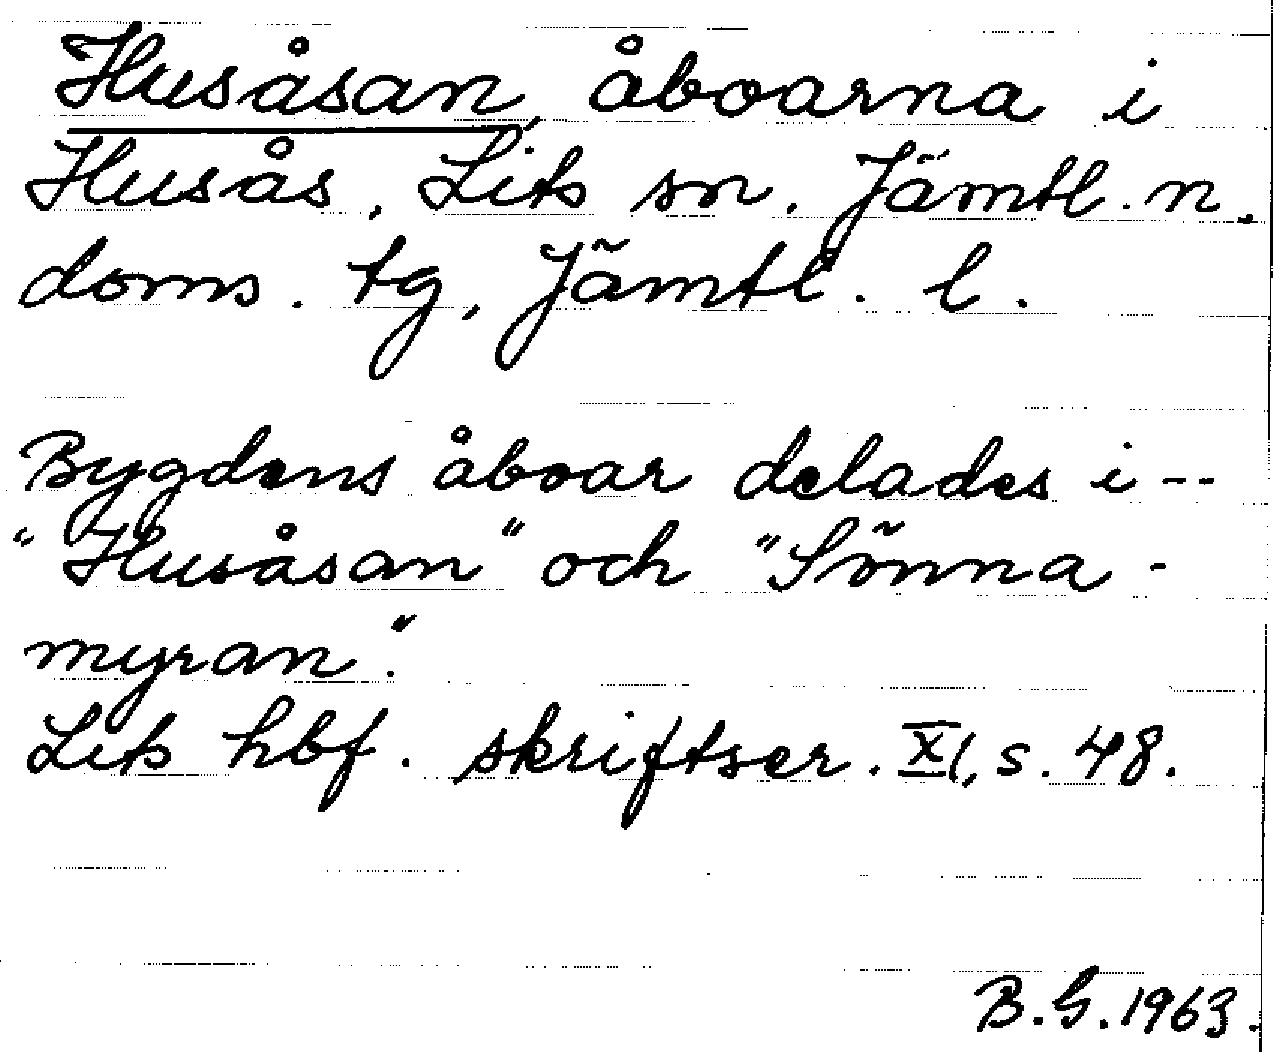 Husåsan, åboarna i
Husås, Lits sn. Jämtl. n.
doms. tg, Jämtl. l.
Bygdens åboar delades i --
"Husåsan" och "Sönna-
myran".
Lits hbf. skriftser. XI, s. 48.
B.G. 1963.